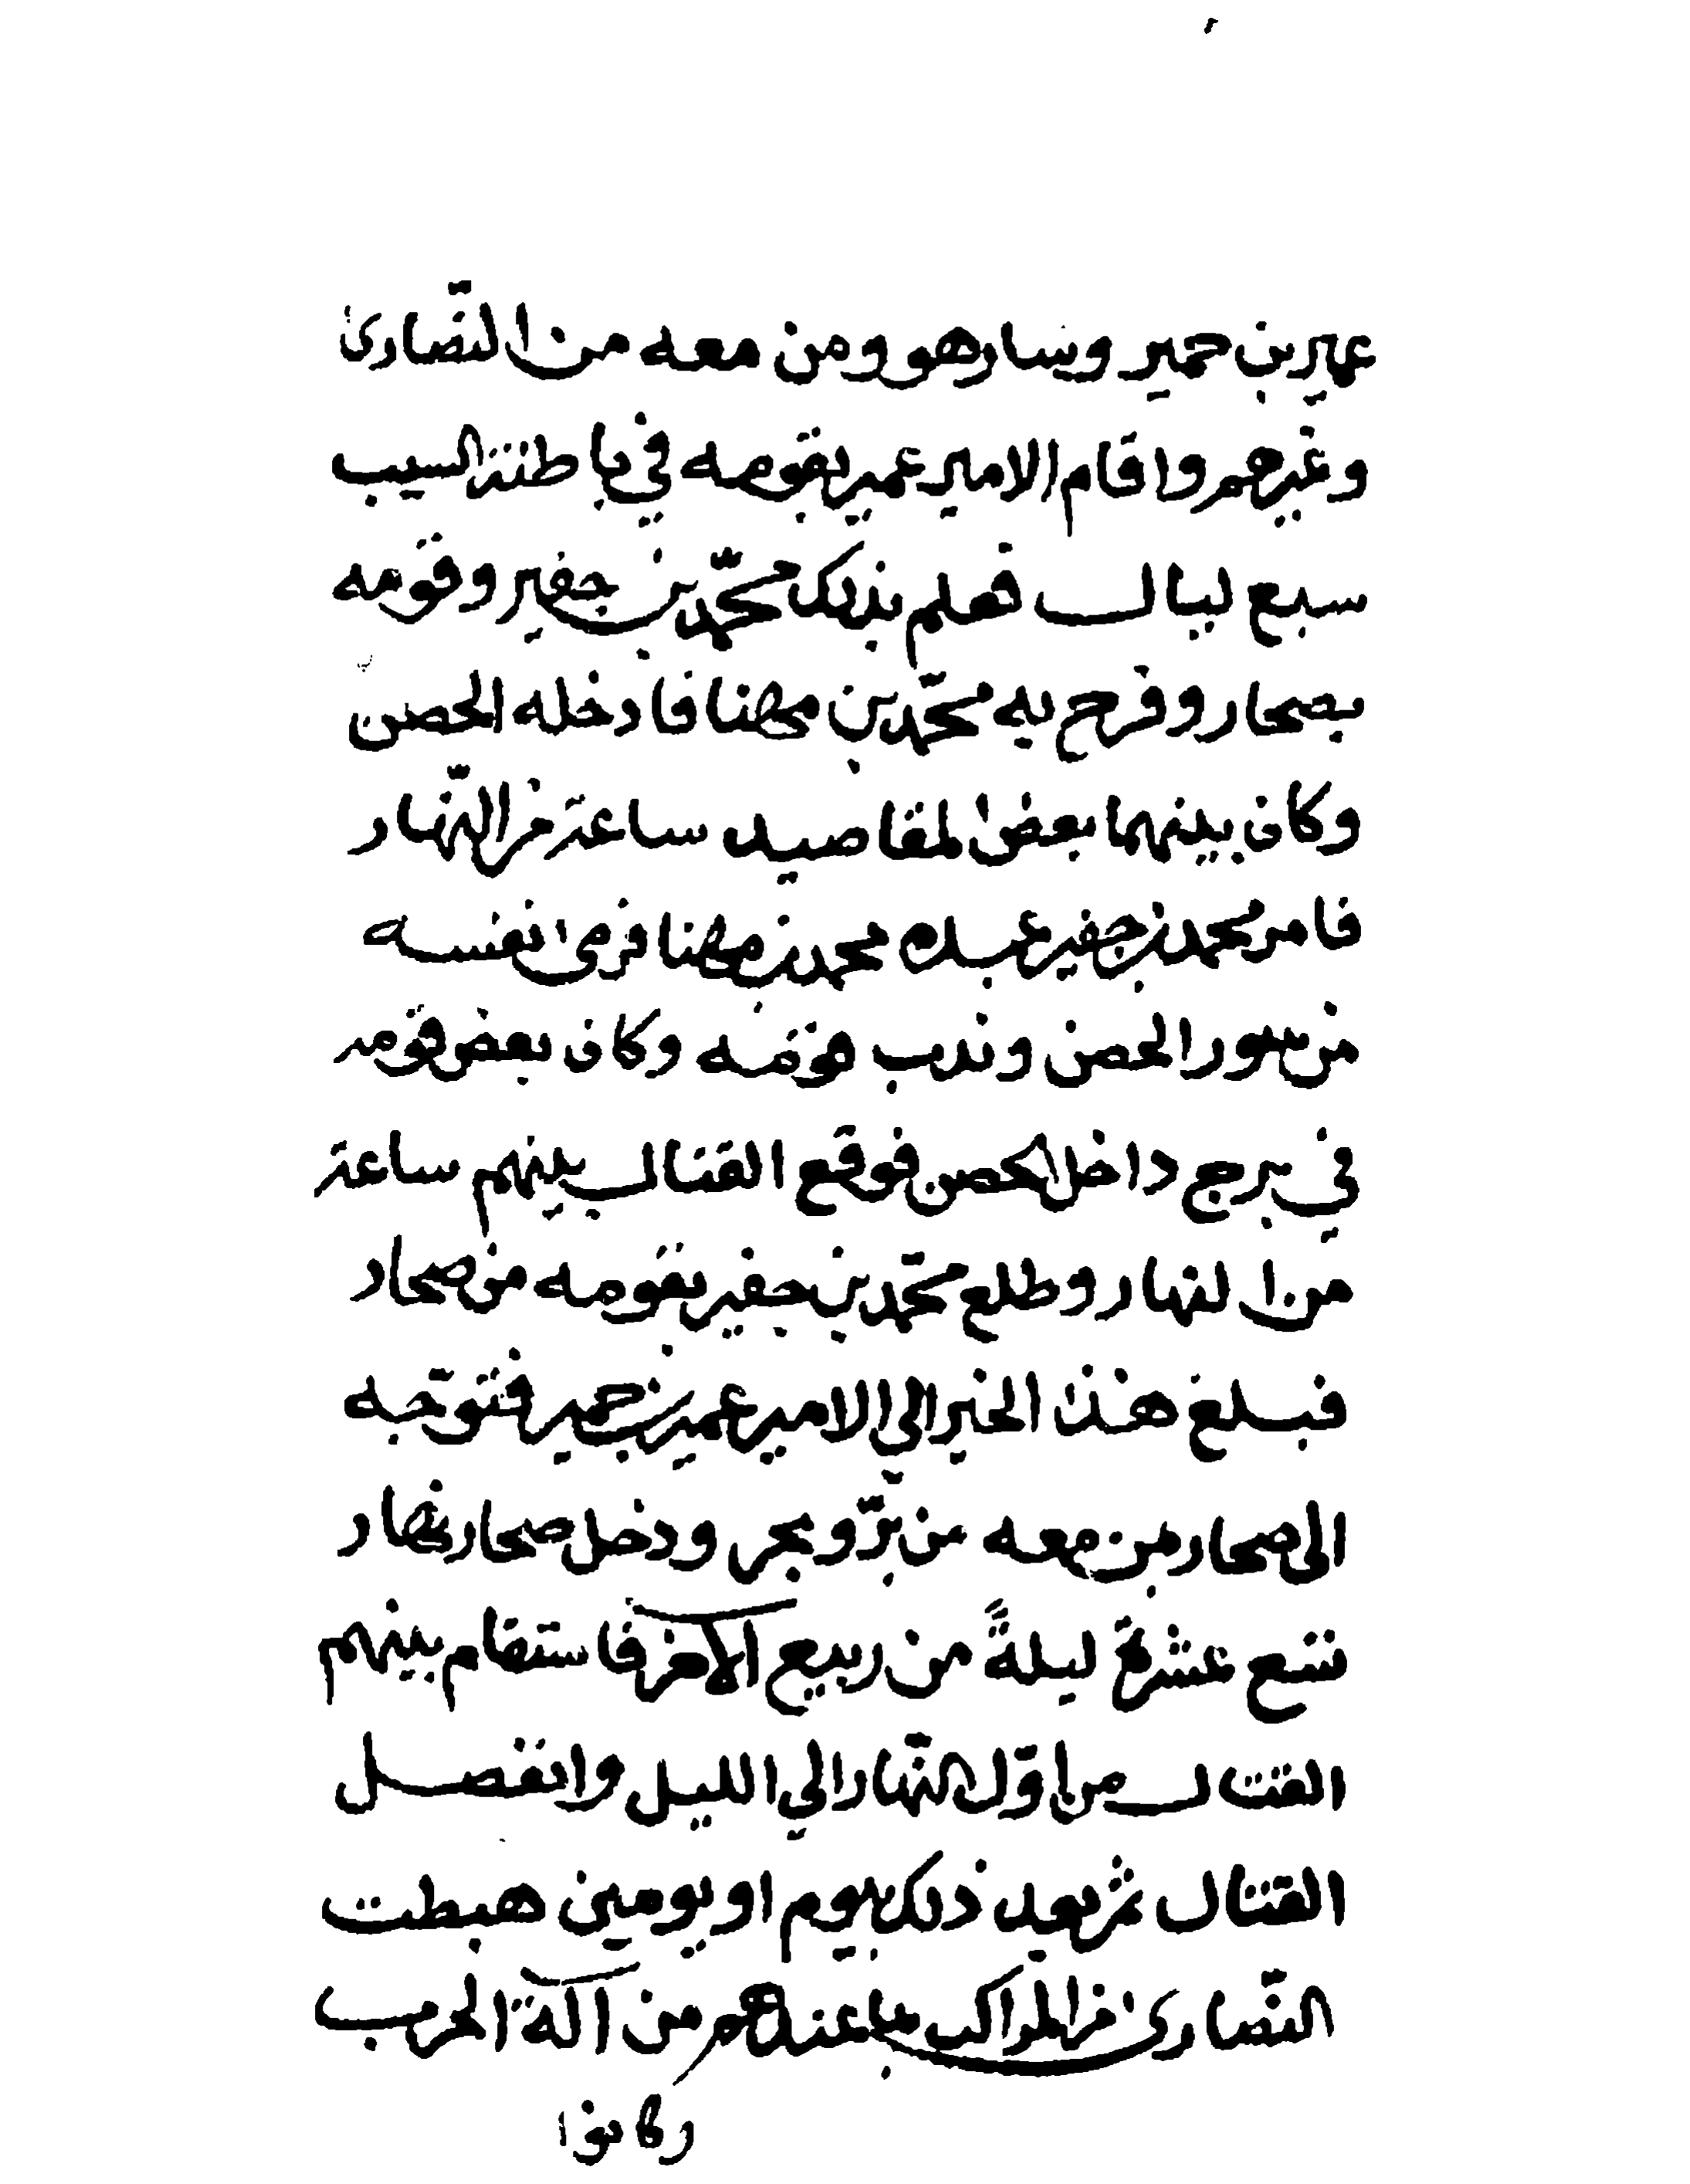 عمير بن حمير وسار هو ومن معه من النّصارى
وغيرهم واقام الامير عمير بقومه في باطنة السيب
سبع ليال فعلم بذلك محمّد بن جفير وقومه
بصحار وفرح به محمّد بن مهنا فادخله الحصن
وكان بينهما بعض المقاصيد ساعة من النّهار
فامر محمد بن جفير عبده محمد بن مهنا فرمى نفسه
من سور الحصن وندب قومه وكان بعض قومه
في برج داخل الحصن فوقع القتال بينهم ساعة
من النهار وطلع محمّد بن جفير بقومه من صحار
فبلغ هذا الخبر الى الامير عمير بن حمير فتوجّه
الى صحار بمن معه من برّ وبحر ودخل صحار نهار
تسع عشرة ليلةً من ربيع الآخر فاستقام بينهم
القتال من اوّل النّهار الي الليل وانفصل
القتال ثم بعد ذلك بيوم او يومين هبطت
النّصارى من المراكب بما عندهم من آلة الحرب
وكانوا